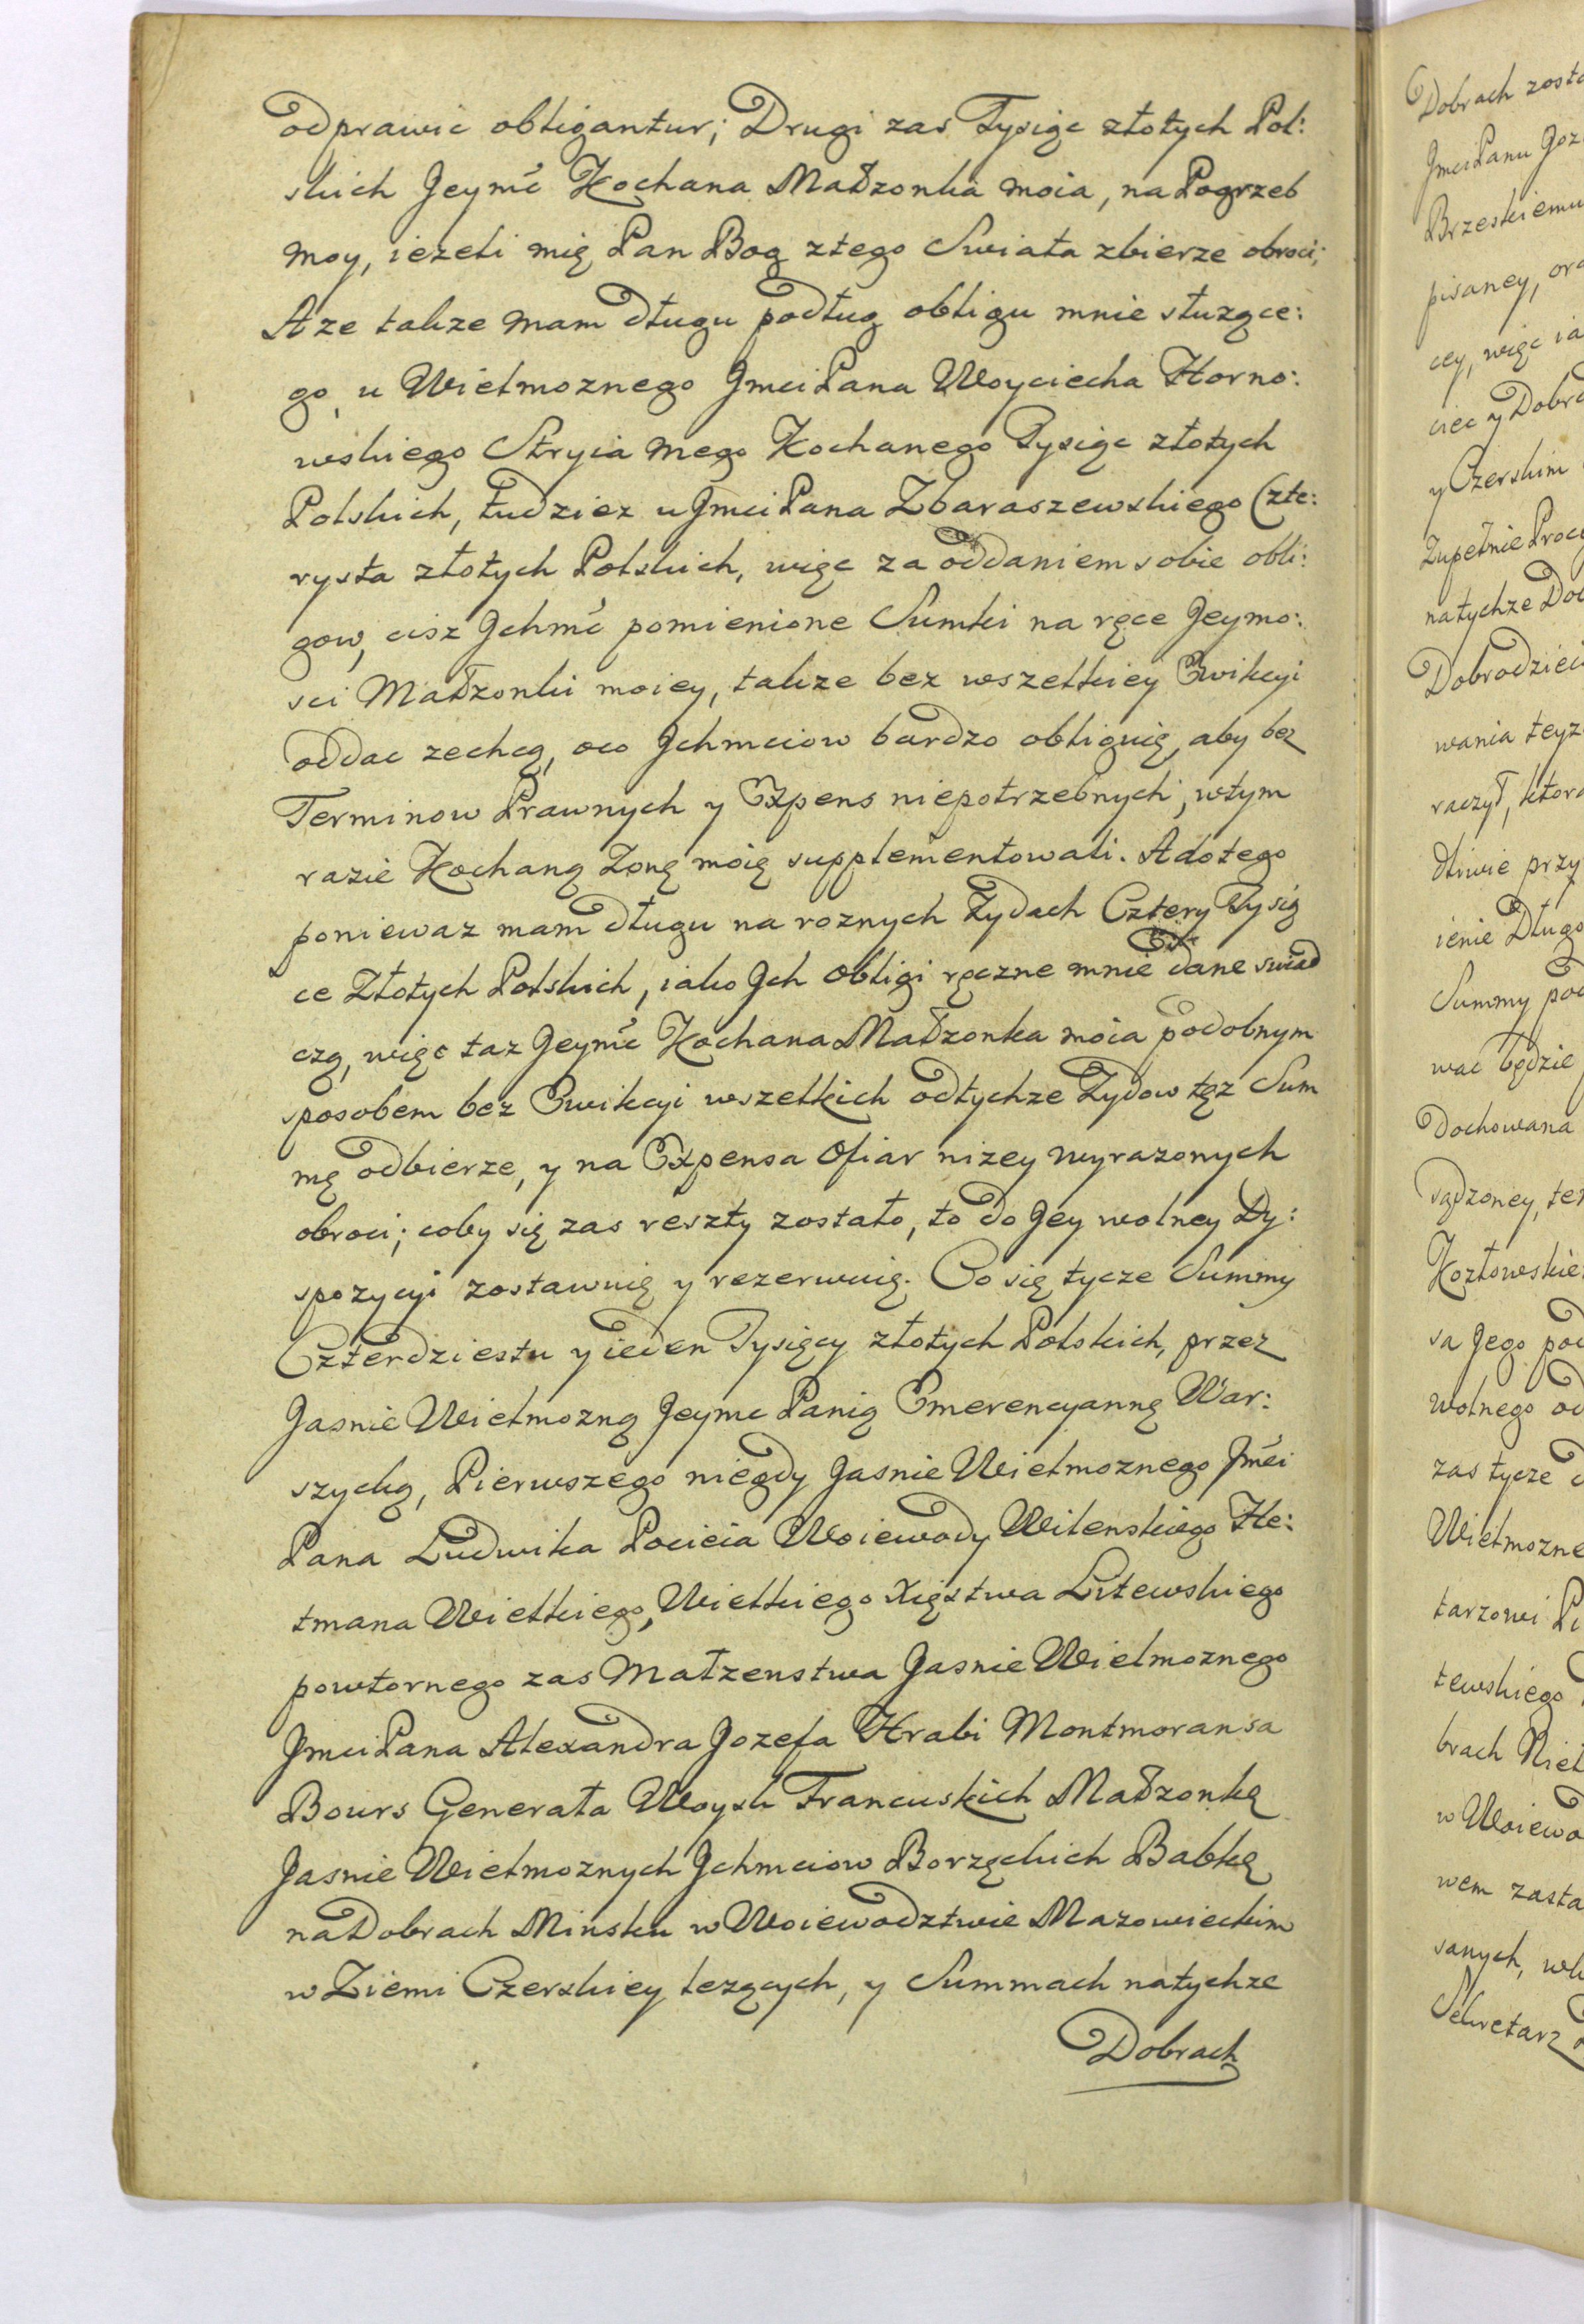 odprawic obligantur; Drugi zas Tysiąc złotych Pol:
skich Jeymć Kochana Małzonka moia, na Pogrzeb
moy, iezeli mię Pan Bog ztego Swiata zbierze obroci;
A ze takze mam długu podług obligu mnie słuzące:
go, u Wielmoznego JmciPana Woyciecha Horno:
wskiego Stryia mego Kochanego Tysiąc złotych
Polskich, tudziez u JmciPana Zbaraszewskiego Czte:
rysta złotych Polskich, więc za oddaniem sobie obli:
gow, cisz Jchmć pomienione Sumki na ręce Jeymo:
sci Małzonki moiey, takze bez wszelkiey Ewikcyi
oddac zechcą, oco Jchmciow bardzo obliguię, aby bez
Terminow Prawnych y Expens niepotrzebnych, wtym
razie Kochaną Zonę moię supplementowali. A dotego
poniewaz mam długu na roznych Zydach Cztery Tysią
ce Złotych Polskich, iako Jch Obligi ręczne mnie dane swiad
czą, więc taz Jeymć Kochana Małzonka moia podobnym
sposobem bez Ewikcyi wszelkich odtychze Zydow tęz Sum
mę odbierze, y na Expensa Ofiar nizey wyrazonych
obroci; coby się zas reszty zostało, to do Jey wolney Dy:
spozycyi zostawuię y rezerwuię. Co się tycze Summy
Czterdziestu y ieden Tysięcy złotych Polskich, przez
Jasnie Wielmozną Jeymc Panią Emerencyannę War:
szycką, Pierwszego niegdy Jasnie Wielmoznego Jmći
Pana Ludwika Pocieia Woiewody Wilenskiego He:
tmana Wielkiego, Wielkiego Xięstwa Litewskiego
powtornego zas Małzenstwa Jasnie Wielmoznego
JmciPana Alexandra Jozefa Hrabi Montmoransa
Bours Generała Woysk Francuskich Małzonkę
Jasnie Wielmoznych Jchmciow Borzęckich Babkę
na Dobrach Minsku w Woiewodztwie Mazowieckim
w Ziemi Czerskiey lezących, y Summach natychze
Dobrach
Dobrach
JmciPanu
Brzeskiemu
pisaney,
cey, więc ia
y Czerskim
Zupełnie
natychze
wania teyz
raczył,
dliwie przy
ienie Długo
Summy
wac będzie
Dochowana
sądzoney,
sa Jego
wolnego
zas tycze
tarzowi
tewskiego
w Woiewo
wem
sanych,
Sekretarz